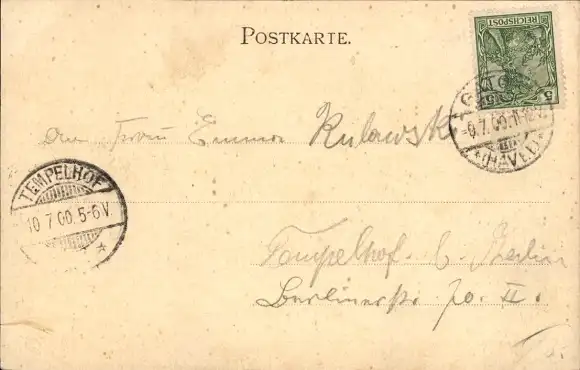 POSTKARTE.
REICHSPOST
5
7.00.
(HAVEL)
An Frau Emma Kulawsk
TEMPELHOF
10 7 00. 5-6V.
*
Tempelhof b. Berlin
Berlinerstr. 70. II.